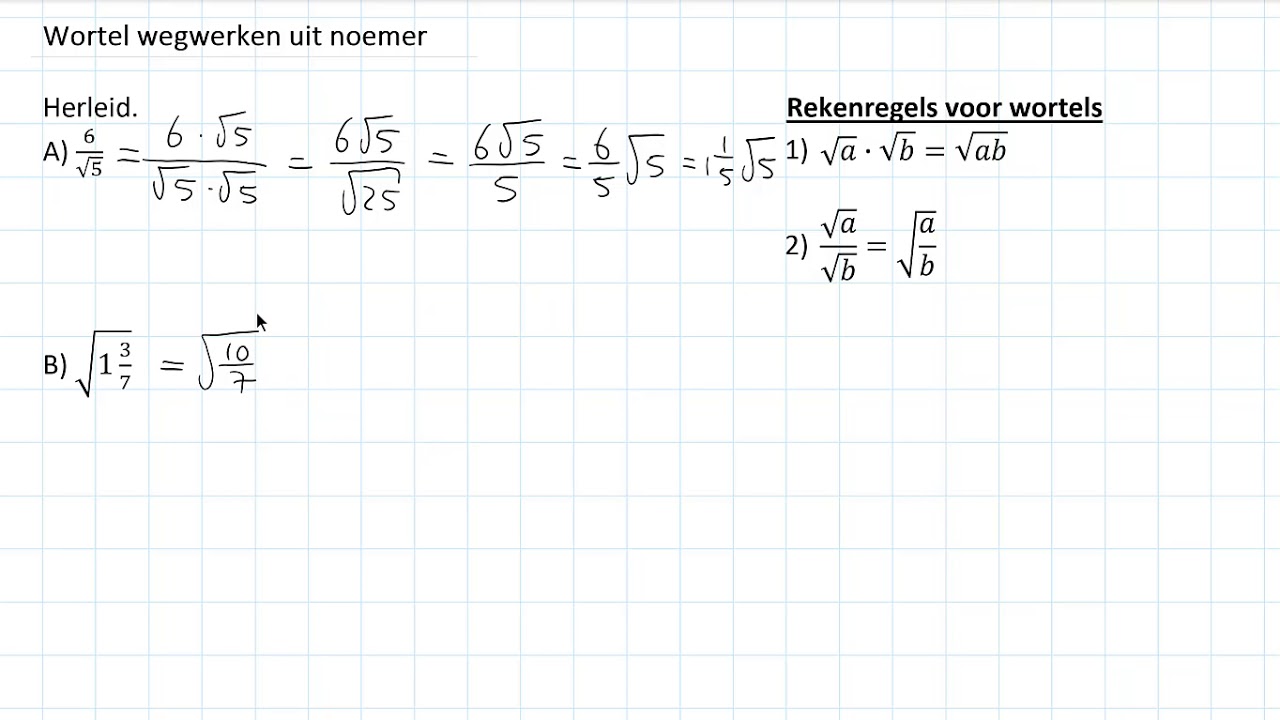 Wortel wegwerken uit noemer
Herleid.
A) 6/√5 = 6 · √5 / √5 · √5 = 6√5 / √25 = 6√5 / 5 = 6/5 √5 = 1 1/5 √5
B) √(1 3/7) = √(10/7)
Rekenregels voor wortels
1) √a · √b = √ab
2) √a / √b = √(a/b)